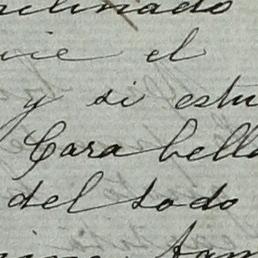 clinado
vie el
y si estu
Carabella
del todo